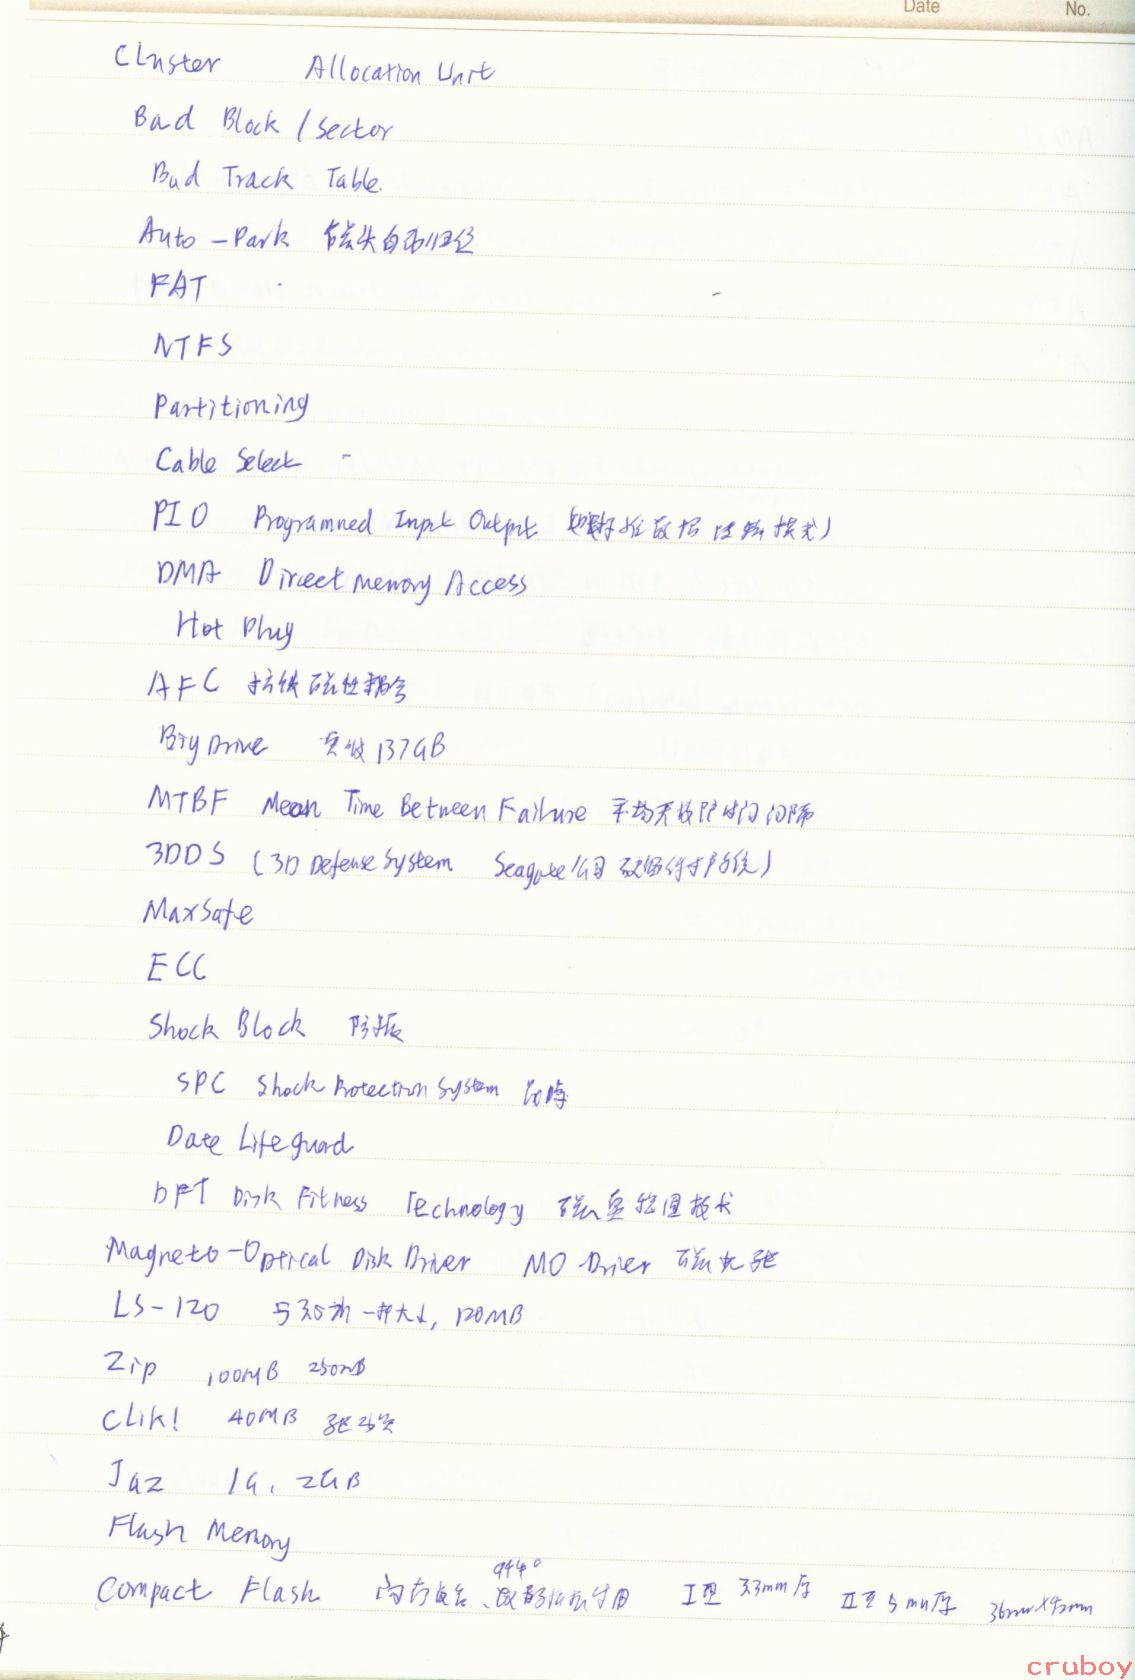 Date No.
Cluster Allocation Unit
Bad Block / Sector
Bad Track Table.
Auto - Park 磁头自动归位
FAT
NTFS
Partitioning
Cable Select -
PIO Programmed Input Output 数据 模式)
DMA Direct Memory Access
Hot Plug
AFC 抗铁磁性耦合
Big Drive 突破137GB
MTBF Mean Time Between Failure 平均无故障时间间隔
3DDS (3D Defense System Seagate公司
MaxSafe
ECC
Shock Block 防振
SPC Shock Protection System 昆腾
Data Lifeguard
DFT Disk Fitness Technology 磁盘 技术
Magneto-Optical Disk Driver MO Drier 磁光驱
LS-120 与3.5 一样大小, 120MB
Zip 100MB 250MB
Clik! 40MB 驱动器
Jaz 1G, 2GB
Flash Memory
Compact Flash 1994° I型 3.3mm厚 II型 5mm厚
cruboy